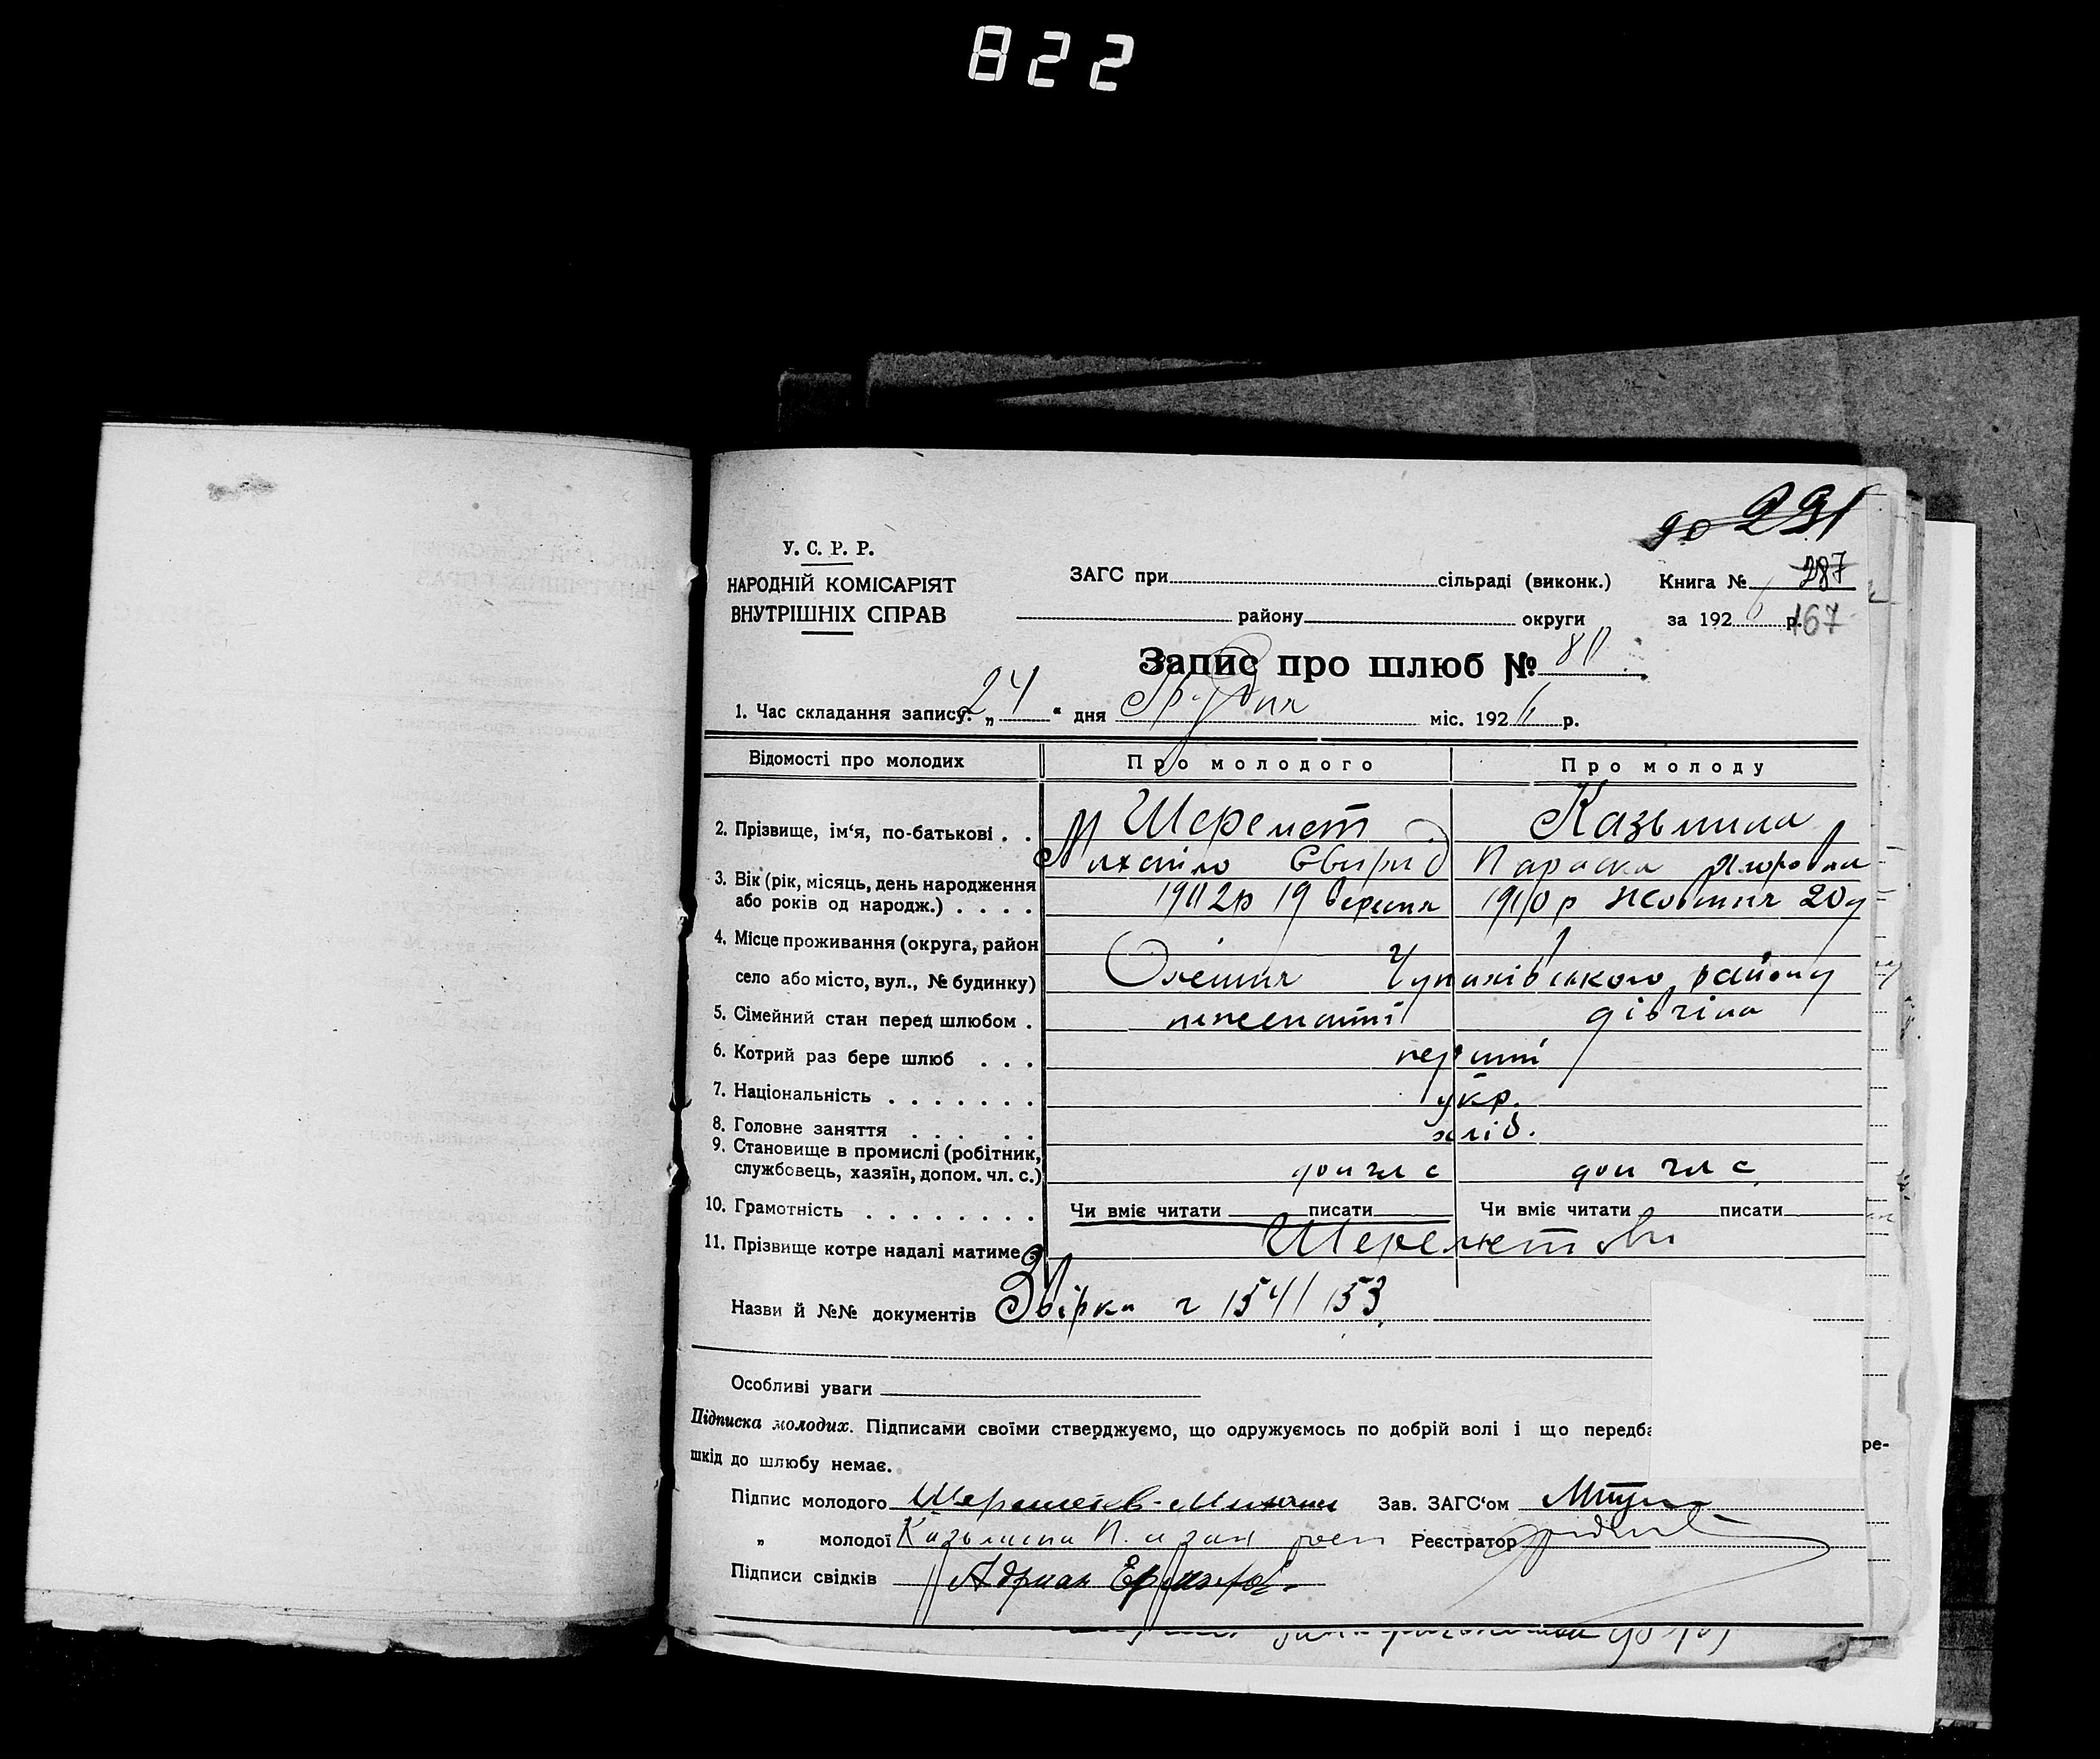 822
до 291
У. С. Р. Р.
НАРОДНІЙ КОМІСАРІЯТ
ВНУТРІШНІХ СПРАВ
ЗАГС при сільраді (виконк.) Книга № 287
району округи за 1926 р. 167
Запис про шлюб № 80
1. Час складання запису: „24“ дня Грудня міс. 1926 р.
Відомості про молодих Про молодого Про молоду
2. Прізвище, ім‘я, по-батькові . . Шеремет Казьмина
Михайло Свирид Параска
3. Вік (рік, місяць, день народження
або років од народж.) . . . . 1902р 19 вересня 1910 р жовтня 20д
4. Місце проживання (округа, район
село або місто, вул., № будинку) Олешня Чупахівського району
5. Сімейний стан перед шлюбом . нежонатий дівчина
6. Котрий раз бере шлюб . . . перший
7. Національність . . . . . . . укр.
8. Головне заняття . . . . . хліб.
9. Становище в промислі (робітник,
службовець, хазяїн, допом. чл. с.) доп чл с доп чл с
10. Грамотність . . . . . . . . Чи вміє читати писати Чи вміє читати писати
11. Прізвище котре надалі матиме Шеремет
Назви й №№ документів Звірка ч 154/153
Особливі уваги
Підписка молодих. Підписами своїми стверджуємо, що одружуємось по добрій волі і що передба ре-
шкід до шлюбу немає.
Підпис молодого Зав. ЗАГС‘ом
„ молодої Казьмина П. Реєстратор
Підписи свідків Адриан